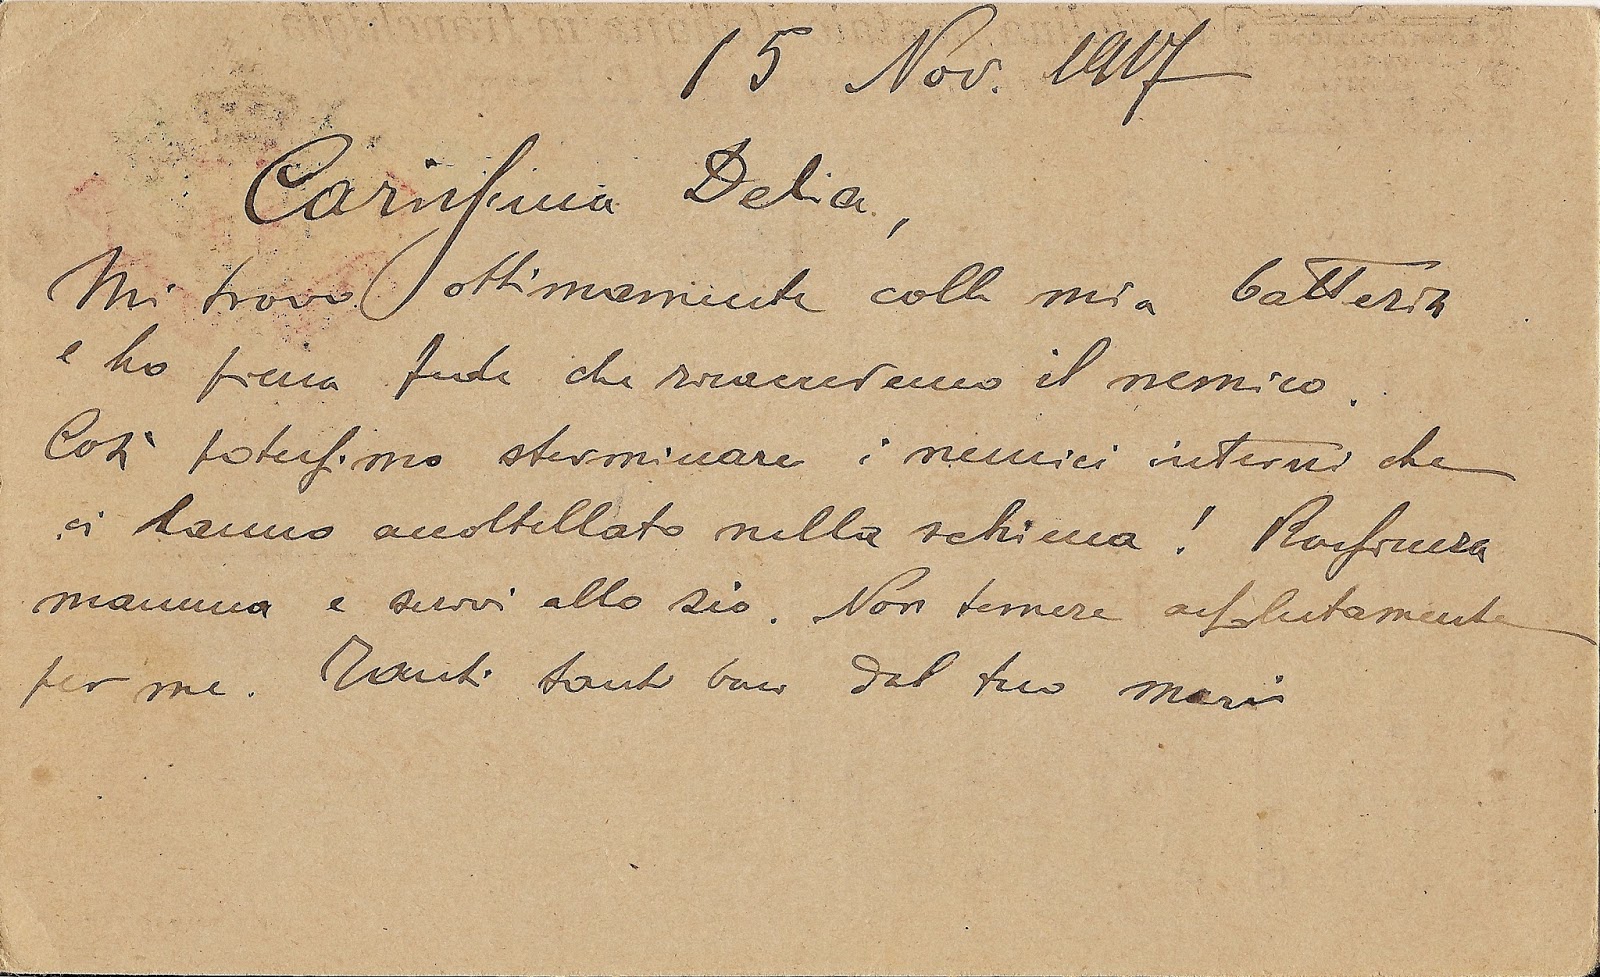 15 Nov. 1917
Carissima Delia,
Mi trovo ottimamente colla mia batteria
e ho piena fede che ricacceremo il nemico.
Così potessimo sterminare i nemici interni che
ci hanno accoltellato nella schiena! Rassicura
mamma e scrivi allo zio. Non temere assolutamente
per me. Tanti tanti baci dal tuo